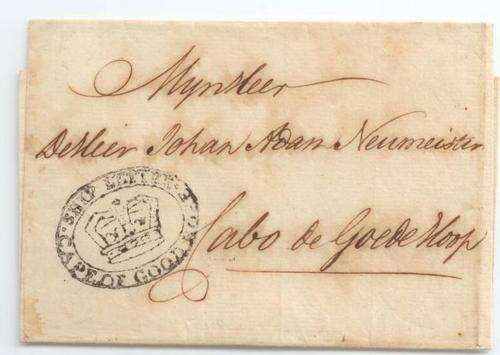 Mynheer
DeHeer Johan Adan Neumeister
Cabo de Goede Hoop
SHIP LETTER
CAPE OF GOOD HOPE